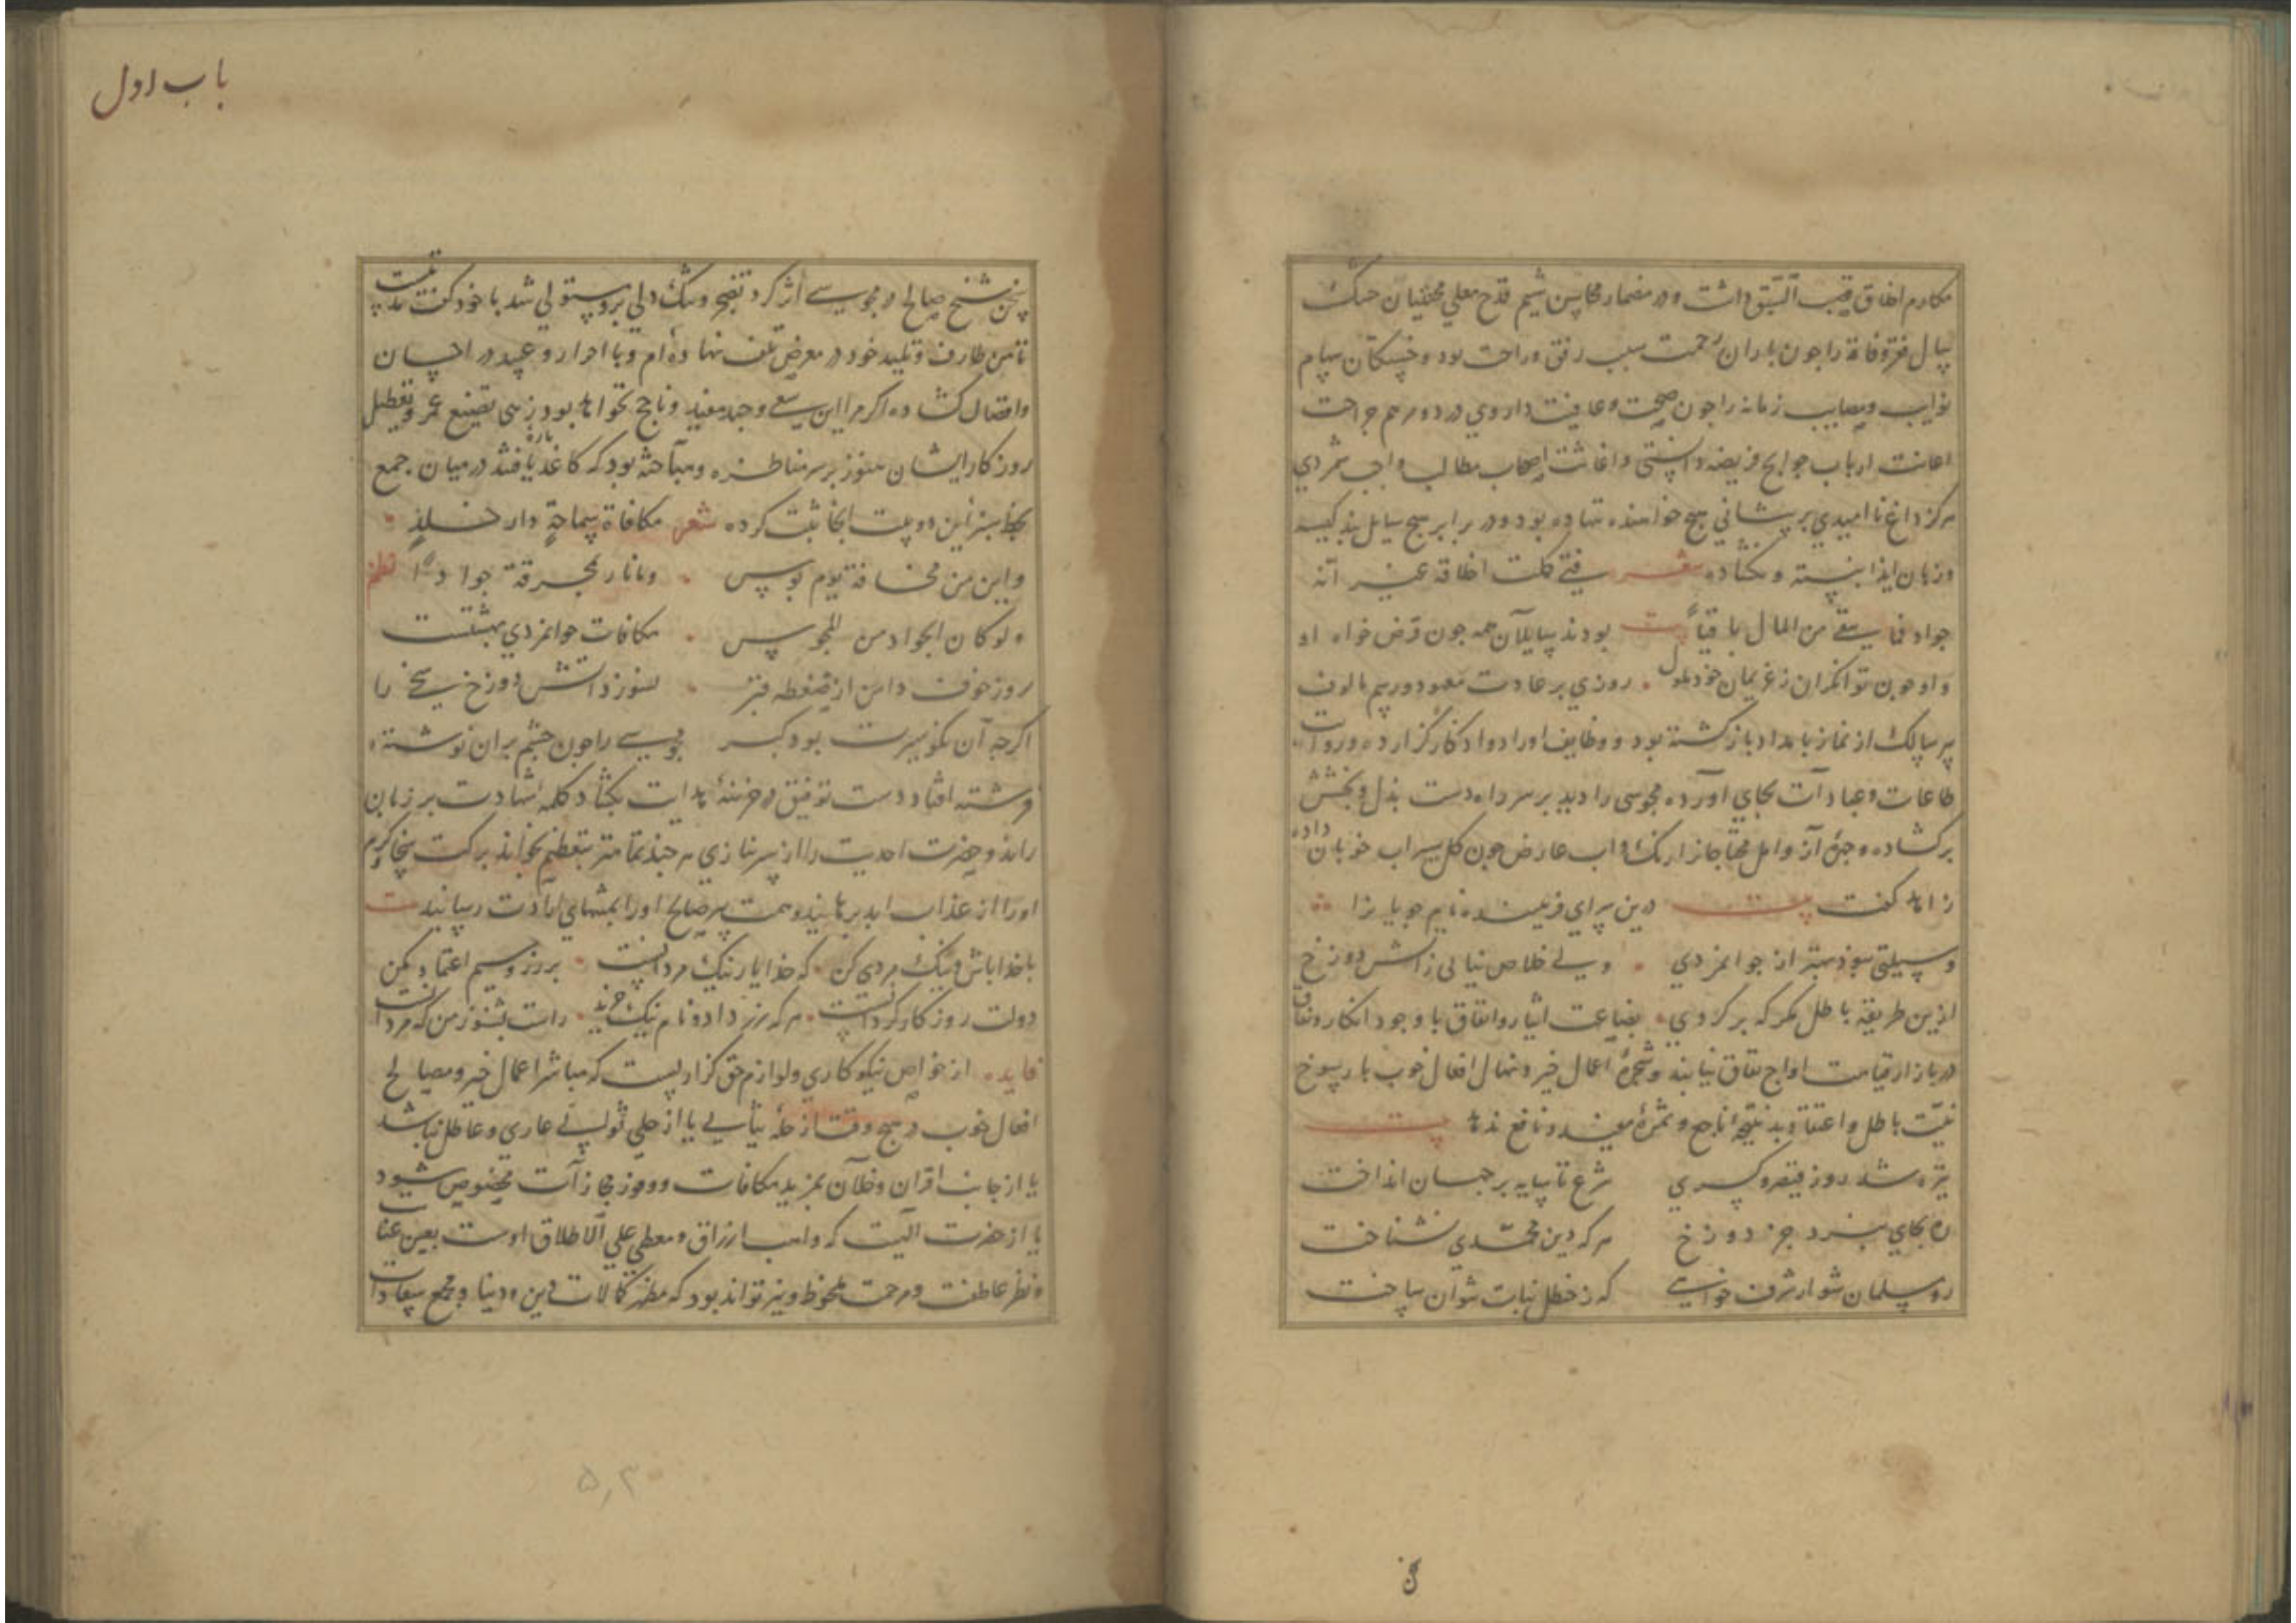 مکارم اخلاق قصب السبق داشت و در مضمار محاسن شیم قدح معلی محنتیان
سال فقر و فاقه را چون باران رحمت سبب رفق و راحت بود و خستکان سهام
نوایب و مصایب زمانه را چون صحت و عافیت داروی درد و مرهم جراحت
اعانت ارباب حوایج فریضه دانستی و اغاثت اصحاب مطالب واجب شمردی
هرکز داغ ناامیدی بر پیشانی هیچ خواهنده ننهاده بود و در برابر هیچ سایل بند کیسه
و زبان ایذا بسته و نکشاده شعر فتی کملت اخلاقه غیر انه
جواد فما یبقی من المال باقیا بیت بودند سایلان همه چون قرض خواه او
و او چون توانکران ز غریمان خود ملول روزی بر عادت معهود و رسم مالوف
پیر سالک از نماز بامداد بازکشته بود و وظایف اوراد و اذکار کزارده و رواتب
طاعات و عبادات بجای آورده مجوسی را دید بر سر راه دست بذل و بخشش
برکشاده و چهره آز و اهل محتاجانرا رنک و اب عارض چون کل سیراب خوبان داده
زاهد کفت بیت درین سرای فریبنده نام جویا نرا
وسیلتی نبود بهتر از جوانمردی ولی خلاص نیابی ز آتش دوزخ
ازین طریقه باطل مکر که برکردی بضاعت ایثار و انفاق با وجود انکار و نفاق
در بازار قیامت رواج نفاق نیابند و شجره اعمال خیر و نهال افعال خوب با رسوخ
نیت باطل و اعتقاد بد نتیجه ناجح و ثمره مفید و نافع ندهد بیت
تیره شد روز قیصر و کسری شرع تا سایه بر جهان انداخت
ره بجای نبرد جز دوزخ هرکه دین محمدی نشناخت
رو مسلمان شو ار شرف خواهی که ز حنظل نبات نتوان ساخت
باب اول
سخن شیخ صالح در مجوسی اثر کرد تضجر و تنک دلی برو مستولی شد با خود کفت مدتیست
تا من طارف و تلید خود در معرض تلف نهاده ام و با احرار و عبید در احسان
و افضال کشاده اکر مرا این سعی و جهد مفید و ناجح نخواهد بود زهی تضییع عمر و تعطیل
روزکار ایشان هنوز بر سر مناظره و مباحثه بود که کاغذ پاره یافتند در میان جمع
بخط سبز این دو بیت انجا ثبت کرده شعر مکافاة سماحة دار خلد
و امن من مخافة یوم بوس و ما نار بمحرقة جوادا نظم
و لو کان الجواد من المجوس مکافات جوانمردی بهشتست
روز خوف و امن از ضغطه قبر نسوزد آتش دوزخ سخی را
اکرچه آن نکو سیرت بود کبر مجوسی را چون چشم بران نوشته
فرشته افتاد دست توفیق در خزینه هدایت بکشاد کلمه شهادت بر زبان
راند و حضرت احدیت را از سر نیازی هرچند تمامتر بتعظیم بخواند برکت سخا و کرم
او را از عذاب ابد برهانید و همت پیر صالح او را بمنتهای ارادت رسانید بیت
با خدا باش و نیک مردی کن که خدا یار نیک مردانست بر زر و سیم اعتماد مکن
دولت روزکار کردانست هرکه زر داد و نام نیک خرید راست بشنو ز من که مرد آنست
فایده از خواص نیکوکاری و لوازم حق کزاریست که مباشر اعمال خیر و مصالح
افعال خوب در هیچ وقت از حله یا از حلی عاری و عاطل نباشد
یا از جانب اقران و خلان بمزید مکافات و وفور مجازات مخصوص شود
یا از حضرت الهیت که واهب ارزاق و معطی علی الاطلاق اوست بعین عنایت
و نظر عاطفت و مرحمت ملحوظ و نیز تواند بود که مظهر کمالات دین و دنیا و مجمع سعادات
۵۳